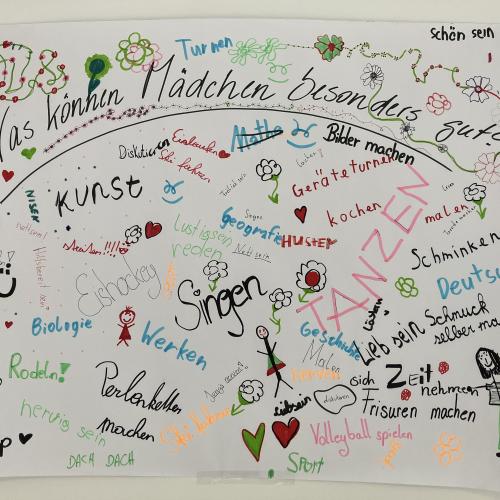 schön sein
Turnen
Was können Mädchen besonders gut?
Diskutieren
Eislaufen
Ski fahren
Mathe
Bilder machen
Geräteturnen
NISEN
Kunst
kochen
malen
TANZEN
Lustigsein
reden
Geografie
Singen
HUSTEN
Nett sein
Schminken
Hilfsbereit sein
Eishockey
Deutsch
Biologie
Werken
Geschichte
Lachen
Lieb sein
Schmuck
selber machen
Malen
nerven
Rodeln!
Perlenketten
machen
sich Zeit nehmen
Frisuren machen
diskutieren
liebsein
nervig sein
Ski fahren
Volleyball spielen
DACH DACH
Sport